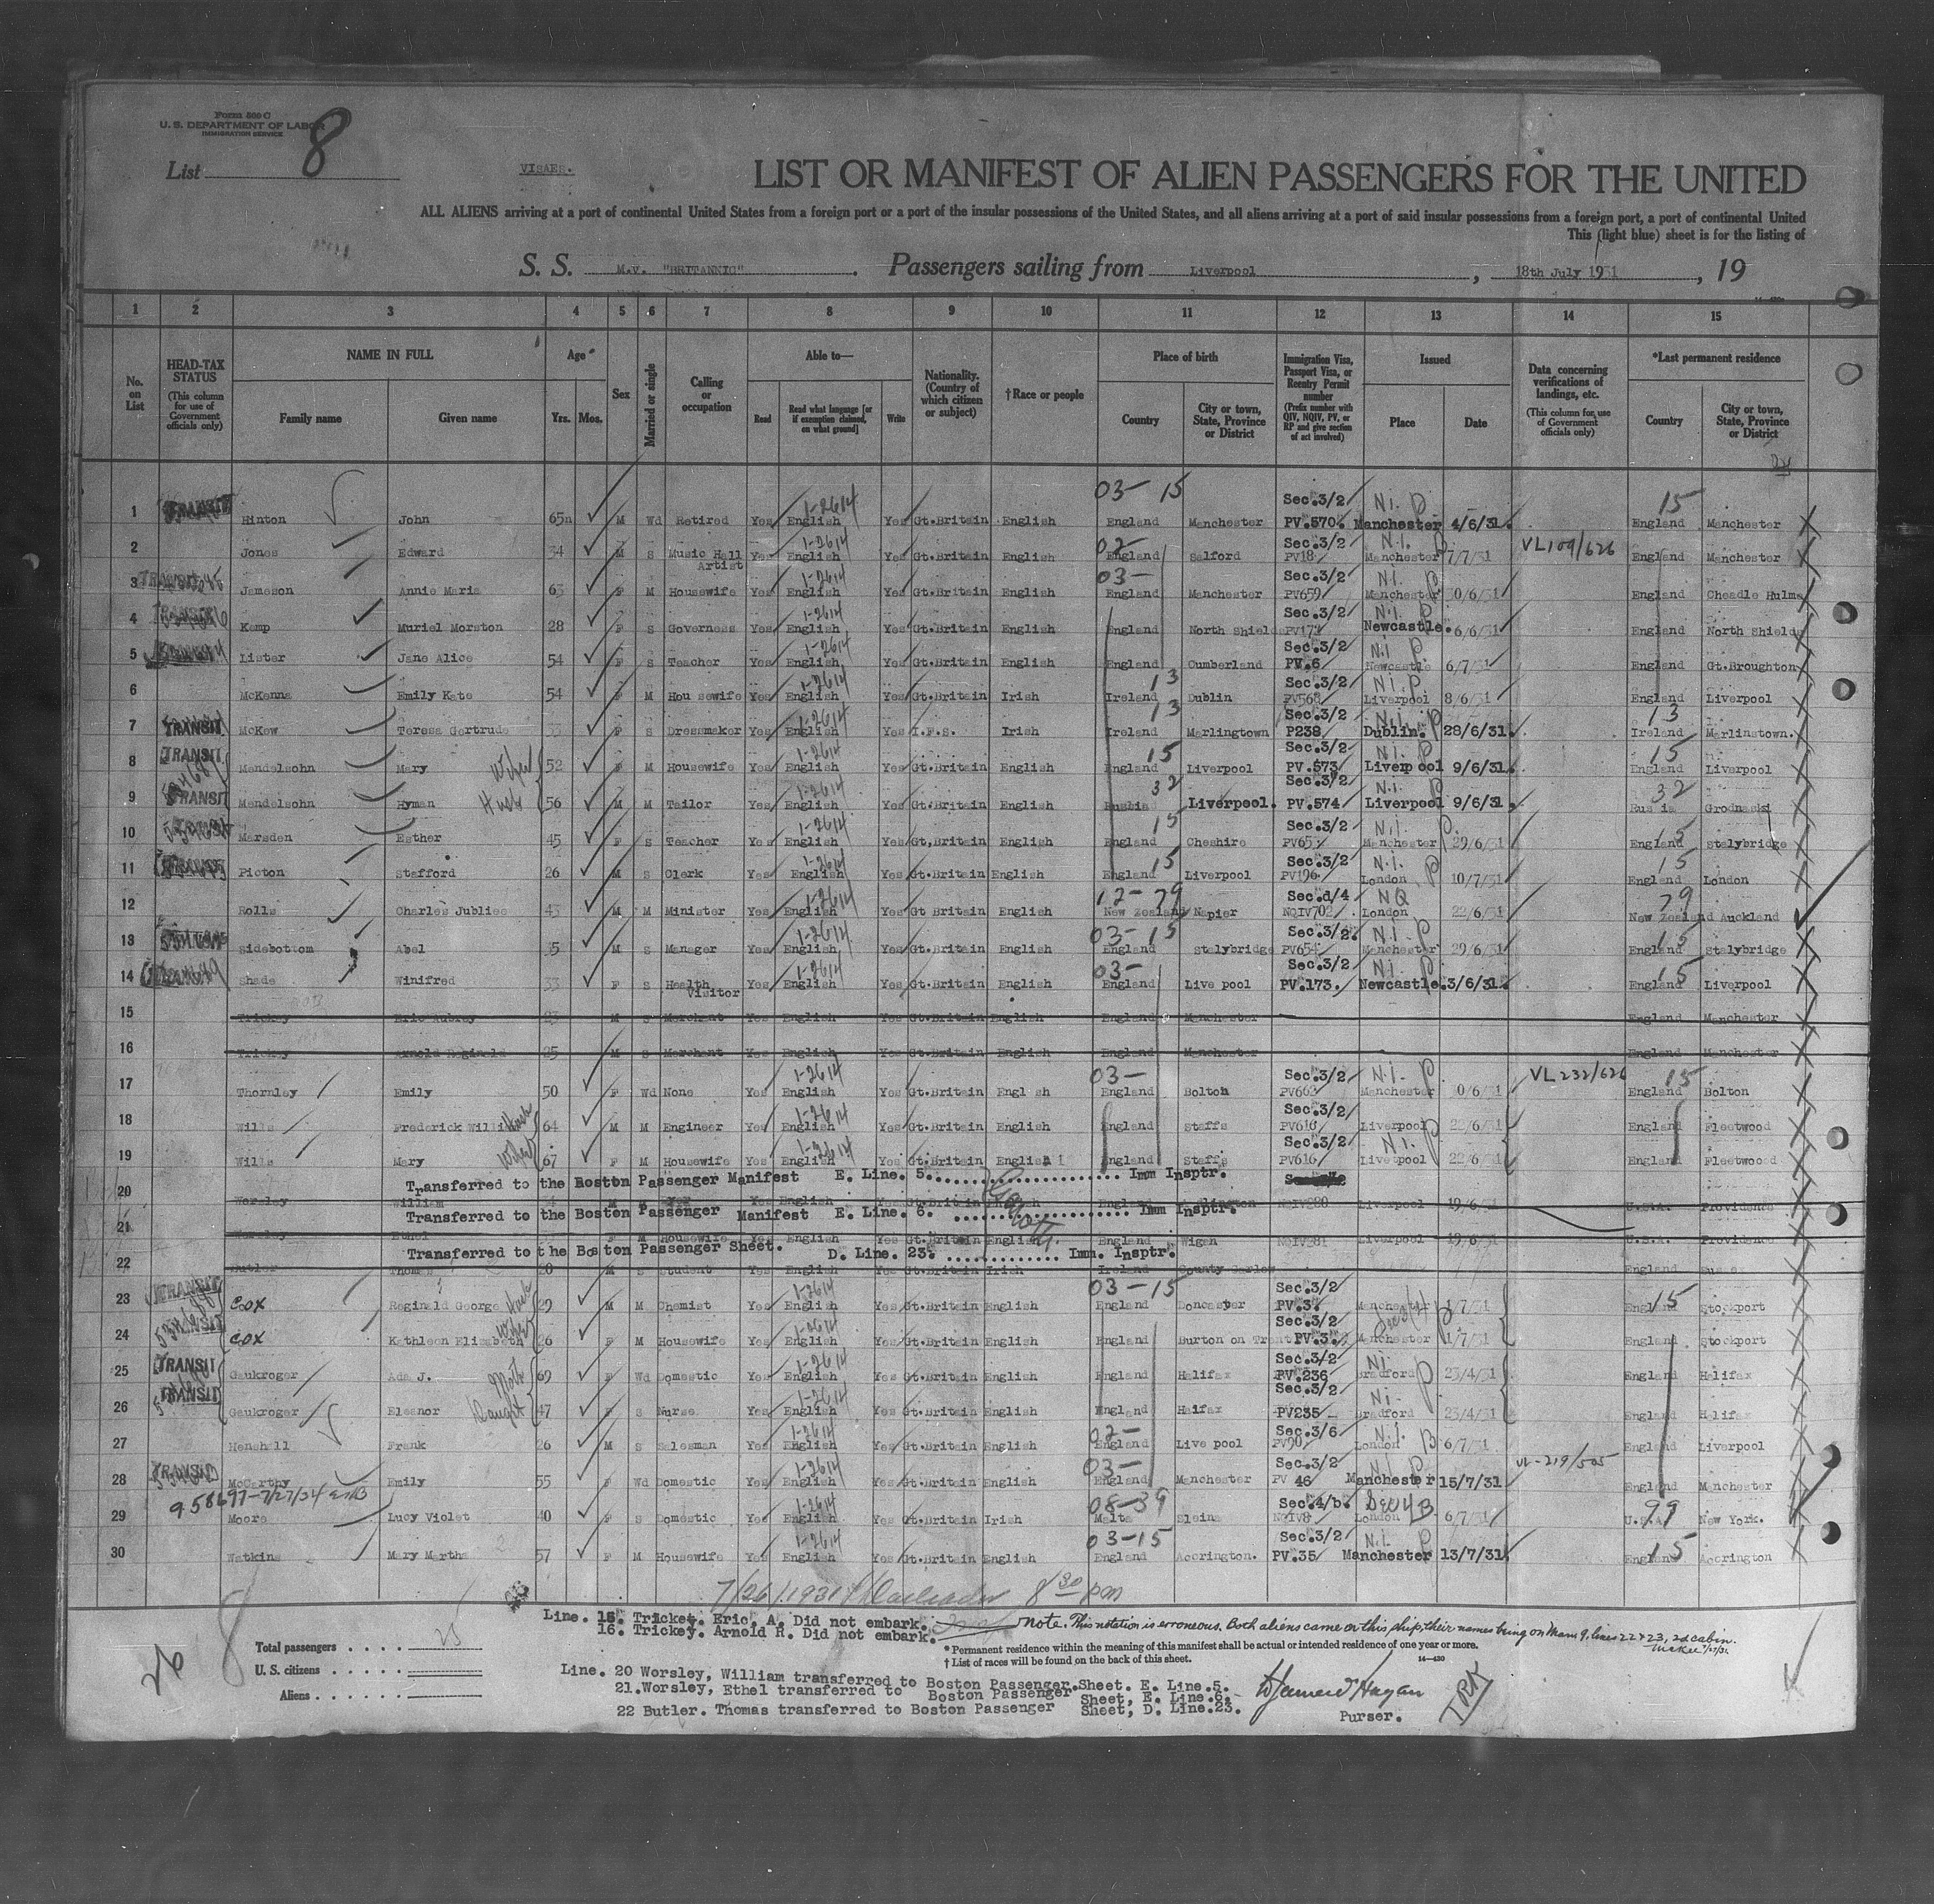 Form 500 C
U. S. DEPARTMENT OF LABOR
IMMIGRATION SERVICE
List 8
VISAES.
LIST OR MANIFEST OF ALIEN PASSENGERS FOR THE UNITED
ALL ALIENS arriving at a port of continental United States from a foreign port or a port of the insular possessions of the United States, and all aliens arriving at a port of said insular possessions from a foreign port, a port of continental United
This (light blue) sheet is for the listing of
S. S. M.V. "BRITANNIC" . Passengers sailing from Liverpool , 18th July 1931 , 19
1 2 3 4 5 6 7 8 9 10 11 12 13 14 15
No. on List
HEAD-TAX STATUS (This column for use of Government officials only)
NAME IN FULL Family name Given name
Age Yrs. Mos.
Sex
Married or single
Calling or occupation
Able to— Read Read what language [or if exemption claimed, on what ground] Write
Nationality. (Country of which citizen or subject)
†Race or people
Place of birth Country City or town, State, Province or District
Immigration Visa, Passport Visa, or Reentry Permit number (Prefix number with QIV, NQIV, PV, or RP and give section of act involved)
Issued Place Date
Data concerning verifications of landings, etc. (This column for use of Government officials only)
*Last permanent residence Country City or town, State, Province or District
03- 15 Sec.3/2 N.I. P 15
1 TRANSIT Hinton John 65 M Wd Retired Yes English 1-2614 Yes Gt.Britain English England Manchester PV.570. Manchester 4/6/31. England Manchester
2 Jones Edward 34 M S Music Hall Artist Yes English 1-2614 Yes Gt.Britain English 02- England Salford Sec.3/2 PV18 N.I. Manchester 7/7/31 VL109/626 England Manchester
3 TRANSIT Jameson Annie Maria 63 F M Housewife Yes English 1-2614 Yes Gt.Britain English 03- England Manchester Sec.3/2 PV659 N.I. P Manchester 30/6/31 England Cheadle Hulme
4 TRANSIT Kemp Muriel Morston 28 F S Governess Yes English 1-2614 Yes Gt.Britain English England North Shields Sec.3/2 N.I. P Newcastle. 6/6/31 England North Shields
5 Lister Jane Alice 54 F S Teacher Yes English 1-2614 Yes Gt.Britain English England Cumberland Sec.3/2 PV.6 N.I P Newcastle 6/7/31 England Gt.Broughton
6 McKenna Emily Kate 54 F M Housewife Yes English 1-2614 Yes Gt.Britain Irish 13 Ireland Dublin Sec.3/2 PV568 N.I. P Liverpool 8/6/31 England Liverpool
7 TRANSIT McKew Teresa Gertrude 33 F S Dressmaker Yes English 1-2614 Yes I.F.S. Irish 13 Ireland Marlingtown Sec.3/2 P238 N.I. P Dublin. 28/6/31. 13 Ireland Marlinstown.
8 TRANSIT Mendelsohn Mary Wife 52 F M Housewife Yes English 1-2614 Yes Gt.Britain English 15 England Liverpool Sec.3/2 PV.573 N.I. P Liverpool 9/6/31. 15 England Liverpool
9 TRANSIT Mendelsohn Hyman Husb 56 M M Tailor Yes English 1-2614 Yes Gt.Britain English 32 Russia Liverpool. Sec.3/2 PV.574 N.I. P Liverpool 9/6/31. 32 Russia Grodnaski
10 Marsden Esther 45 F S Teacher Yes English 1-2614 Yes Gt.Britain English 15 England Cheshire Sec.3/2 N.I. P. Manchester 29/6/31 15 England Stalybridge
11 Picton Stafford 26 M S Clerk Yes English 1-2614 Yes Gt.Britain English 15 England Liverpool Sec.3/2 PV196 N.I. P London 10/7/31 15 England London
12 Rolls Charles Jubliee 43 M M Minister Yes English 1-2614 Yes Gt Britain English 12-79 New Zealand Napier Sec.d/4 NQIV702 NQ London 22/6/31 79 New Zealand Auckland
13 Sidebottom Abel 35 M S Manager Yes English 1-2614 Yes Gt.Britain English 03-15 England Stalybridge Sec.3/2. PV654 N.I. P Manchester 29/6/31 15 England Stalybridge
14 Shade Winifred 33 F S Health Visitor Yes English 1-2614 Yes Gt.Britain English 03- England Live pool Sec.3/2 PV.173. N.I. P Newcastle. 3/6/31. 15 England Liverpool
15 Trickey Eric Aubrey 23 M S Merchant Yes English Yes Gt.Britain English England Manchester England Manchester
16 Trickey Arnold Reginald 25 M S Merchant Yes English Yes Gt.Britain English England Manchester England Manchester
17 Thornley Emily 50 F Wd None Yes English 1-2614 Yes Gt.Britain Engl sh 03- England Bolton Sec.3/2 PV663 N.I. P Manchester 30/6/31 VL232/626 15 England Bolton
18 Wills Frederick Willi Husb 64 M M Engineer Yes English 1-2614 Yes Gt.Britain English England Staffs Sec.3/2 PV616 Liverpool 22/6/31 England Fleetwood
19 Wills Mary Wife 67 F M Housewife Yes English 1-2614 Yes Gt.Britain English England Staffs Sec.3/2 PV616 N.I. P Liverpool 22/6/31 England Fleetwood
Transferred to the Boston Passenger Manifest E. Line. 5. Imm Insptr.
20 Worsley William M Yes English Yes Gt.Britain English England NQIV280 Liverpool 19/6/31 U.S.A. Providence
Transferred to the Boston Passenger Manifest E. Line. 6. Imm Insptr.
21 Worsley Ethel F M Housewife Yes English Yes Gt.Britain English England Wigan NQIV281 Liverpool 19/6/31 U.S.A. Providence
Transferred to the Boston Passenger Sheet. D. Line. 23. Imm. Insptr.
22 Butler Thomas 20 M S Student Yes English Yes Gt.Britain Irish Ireland County Carlow England Sussex
23 TRANSIT COX Reginald George Husb 29 M M Chemist Yes English 1-2614 Yes Gt.Britain English 03-15 England Doncaster Sec.3/2 PV.3. Manchester 1/7/31 15 England Stockport
24 TRANSIT COX Kathleen Elizabeth Wife 26 F M Housewife Yes English 1-2614 Yes Gt.Britain English England Burton on Trent Sec.3/2 PV.3. P Manchester 1/7/31 England Stockport
25 TRANSIT Gaukroger Ada J. Moth 69 F Wd Domestic Yes English 1-2614 Yes Gt.Britain English England Halifax Sec.3/2 PV.236 N.I. P Bradford 23/4/31 England Halifax
26 TRANSIT Gaukroger Eleanor Daught 47 F S Nurse Yes English 1-2614 Yes Gt.Britain English England Halifax Sec.3/2 PV235 N.I. Bradford 23/4/31 England Halifax
27 Henshall Frank 26 M S Salesman Yes English 1-2614 Yes Gt.Britain English 02- England Live pool Sec.3/6 PV90 N.I. B London 6/7/31 England Liverpool
28 TRANSIT McCarthy Emily 55 F Wd Domestic Yes English 1-2614 Yes Gt.Britain English 03- England Manchester Sec.3/2 PV 46 N.I. P Manchester 15/7/31 VL-219/505 England Manchester
29 958697-7/27/34 Moore Lucy Violet 40 F S Domestic Yes English 1-2614 Yes Gt.Britain Irish 08-39 Malta Sleina Sec.4/b. NQIV8 London 6/7/31 99 U.S.A. New York.
30 Watkins Mary Martha 57 F M Housewife Yes English 1-2614 Yes Gt.Britain English 03-15 England Accrington. Sec.3/2 PV.35 N.I. P Manchester 13/7/31 15 England Accrington
7/26/1931 8 30 pm
Line. 15. Trickey. Eric. A. Did not embark.
Note. This notation is erroneous. Both aliens came on this ship, their names being on Man 9, lines 22 & 23, 2d cabin.
16. Trickey. Arnold R. Did not embark.
Total passengers . . . . 25
*Permanent residence within the meaning of this manifest shall be actual or intended residence of one year or more.
† List of races will be found on the back of this sheet.
14—430
U. S. citizens . . . . .
Aliens . . . . . .
26 8
Line. 20 Worsley, William transferred to Boston Passenger.Sheet. E. Line.5.
21.Worsley, Ethel transferred to Boston Passenger Sheet, E. Line.6.
22 Butler. Thomas transferred to Boston Passenger Sheet, D. Line.23.
Purser.